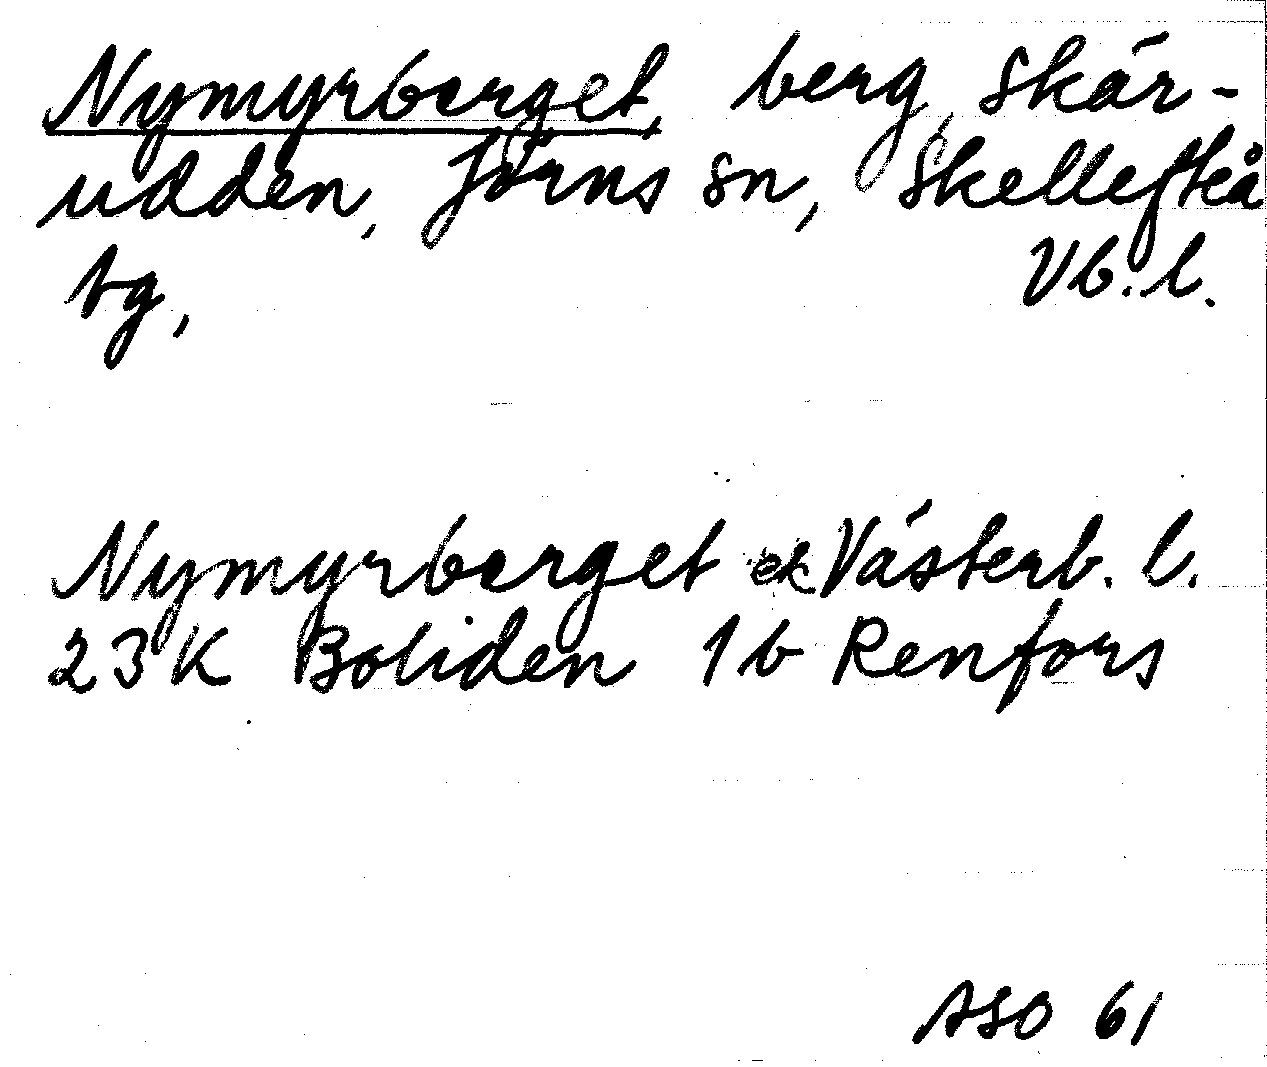 Nymyrberget, berg, Skär-
udden, Jörns sn, Skellefteå
tg, Vb. l.
Nymyrberget ek Västerb. l.
23K Boliden 1b Renfors
ASO 61